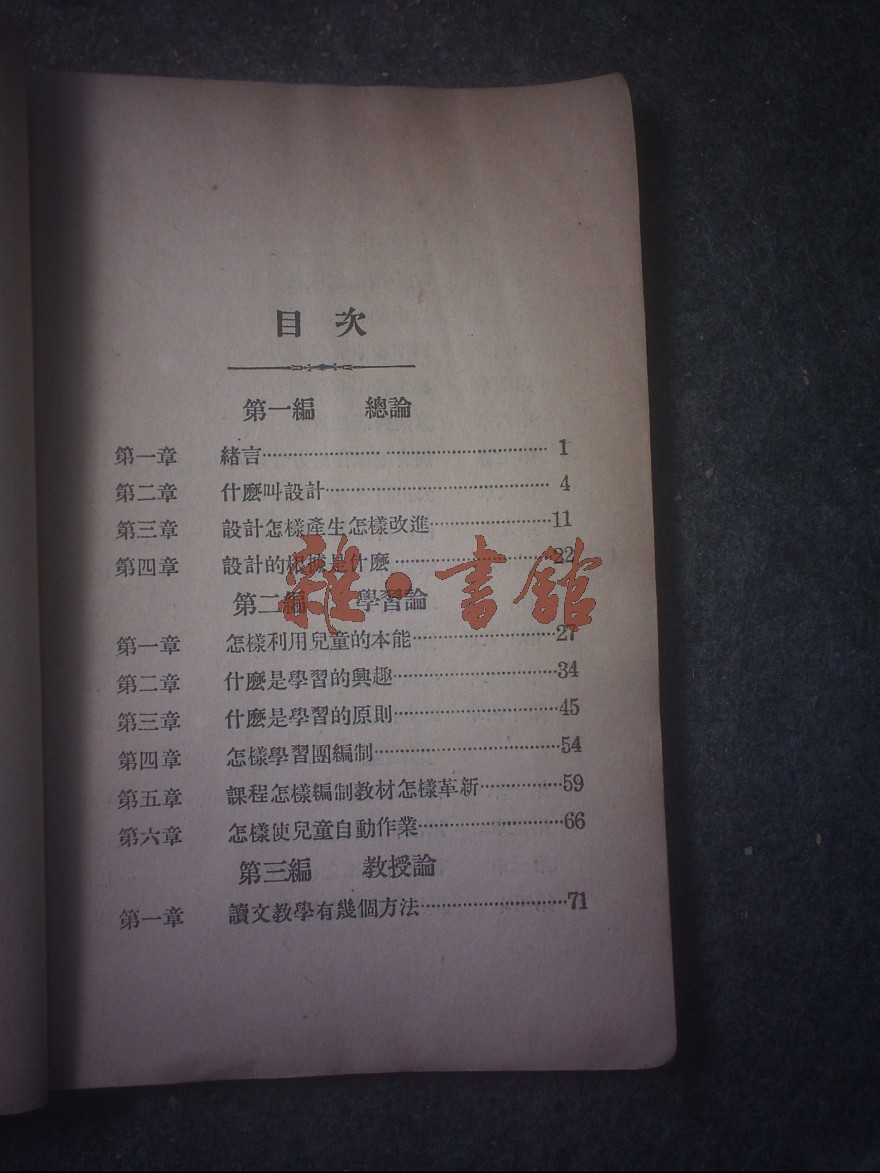 目次
第一編 總論
第一章 緒言…………………… 1
第二章 什麽叫設計…………………… 4
第三章 設計怎樣產生怎樣改進…………11
第四章 設計的根據是什麽……………22
雜·書舘
第二編 學習論
第一章 怎樣利用兒童的本能……………27
第二章 什麽是學習的興趣………………34
第三章 什麽是學習的原則………………45
第四章 怎樣學習團編制…………………54
第五章 課程怎樣編制教材怎樣革新………59
第六章 怎樣使兒童自動作業……………66
第三編 教授論
第一章 讀文教學有幾個方法……………71